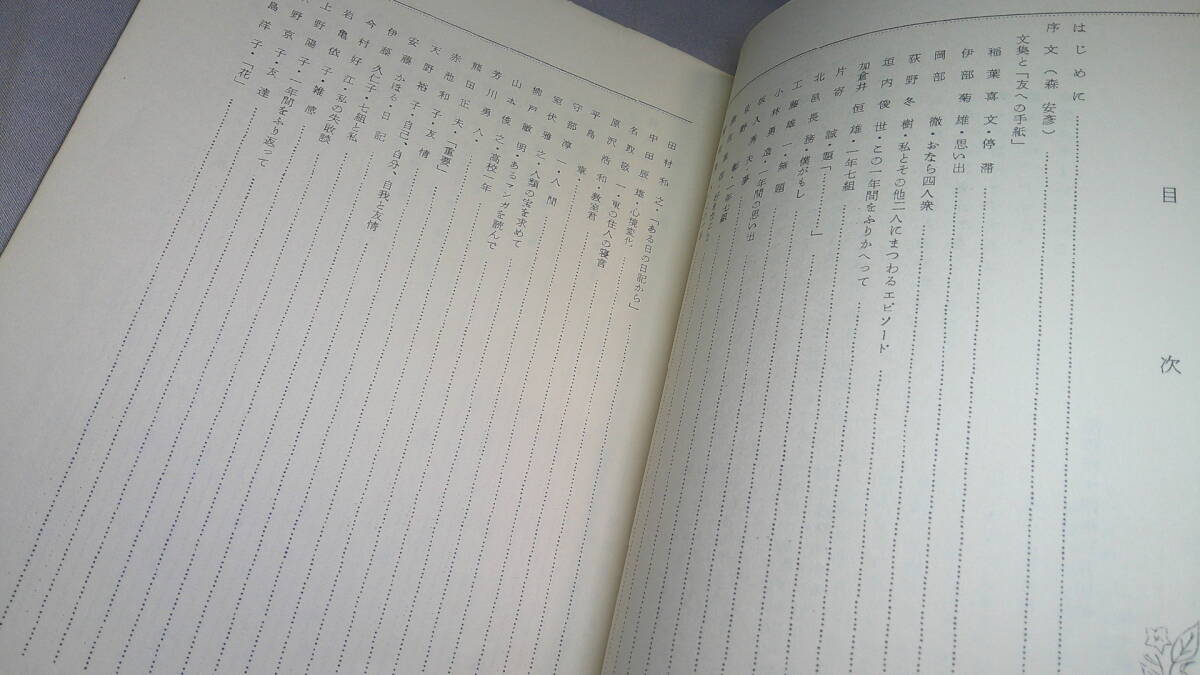 目次
はじめに
序文(森安彦)
文集と「友への手紙」
稲葉喜文・停滞
伊部菊雄・思い出
岡部徹・おなら四人衆
荻野冬樹・私とその他二人にまつわるエピソード
垣内俊世・この一年間をふりかへって
加倉井恒雄・一年七組
片容誠・題「……」
北邑長務・僕がもし
工藤雄一・無題
小林勇造・一年間の思い出
田村和之・「ある日の日記から」
中田辰雄・心境変化
名取敬一・東の住人の寝言
原沢浩和・教室君
平島章
守部厚一・人間
室伏雅之・人類の宝を求めて
楠戸敏明・あるマンガを読んで
山本俊之・高校一年
芳川勇人
熊田正夫・「重要」
赤池和子・友情
天野裕子・自己、自分、自我と友情
安藤かほる・日記
伊藤久仁子・七組と私
今村好江・私の失敗談
岩亀依子・雑感
上野陽子・一年間をふり返って
野京子・友達
島洋子・「花」